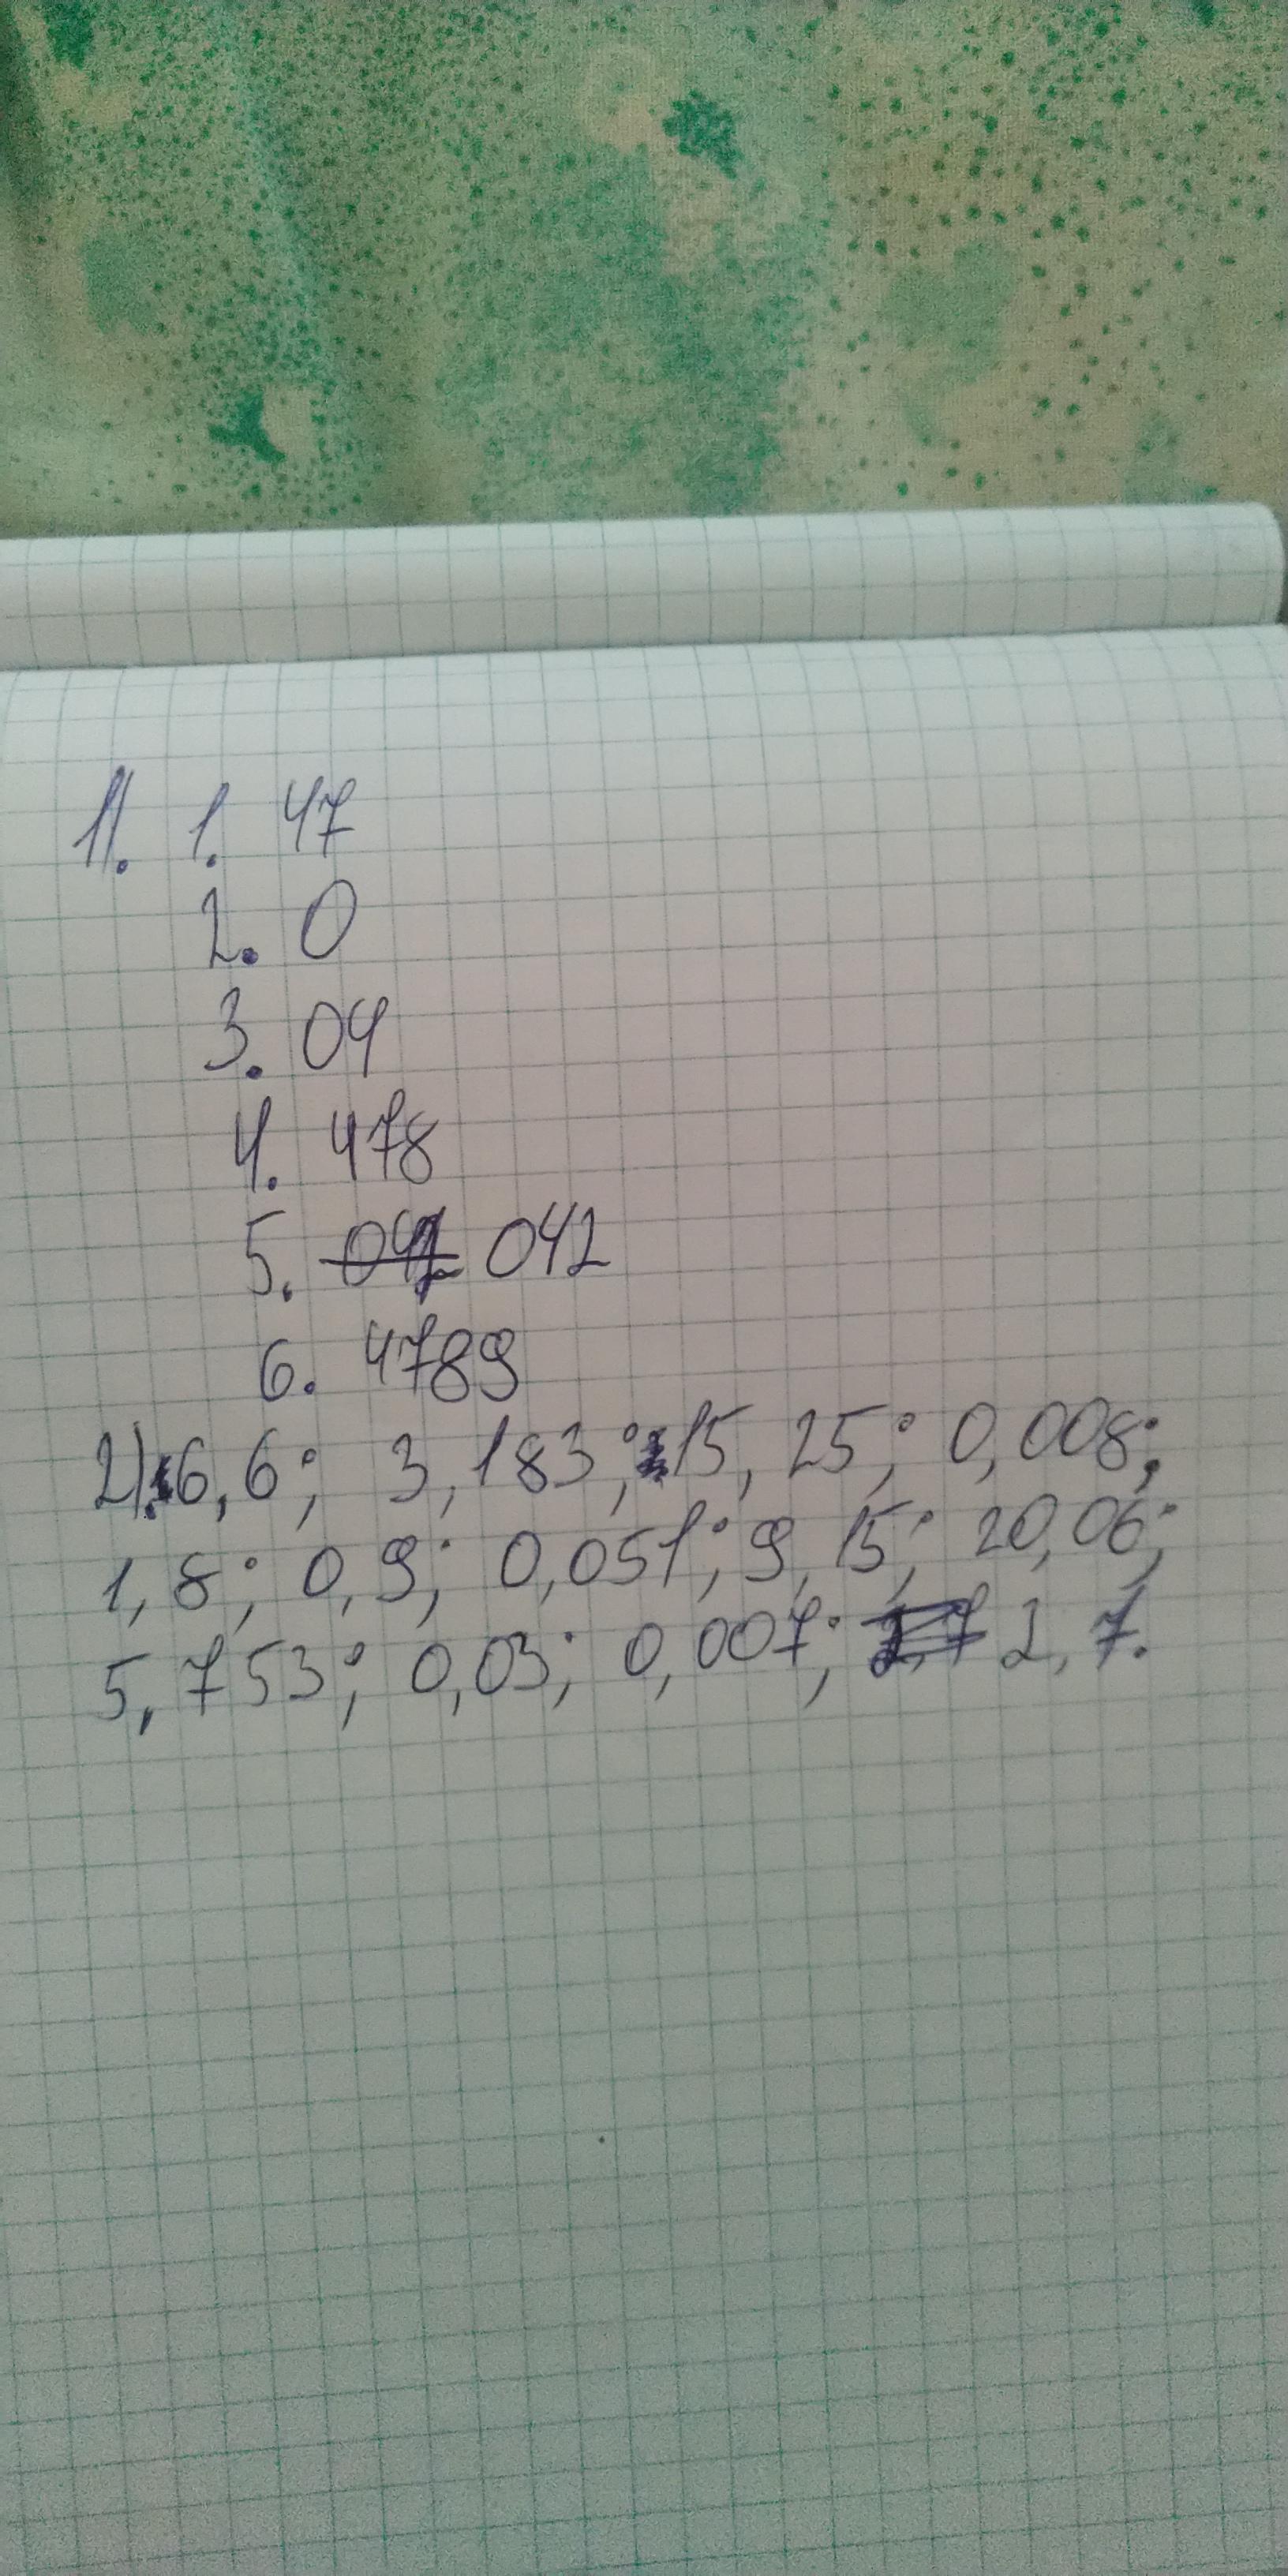 1). 1. 47
2. 0
3. 04
4. 478
5. 042 042
6. 4789
2). 6,6; 3,183; 15,25; 0,008;
1,8; 0,9; 0,051; 9,15; 20,06;
5,753; 0,03; 0,007; 2,7 2,7.